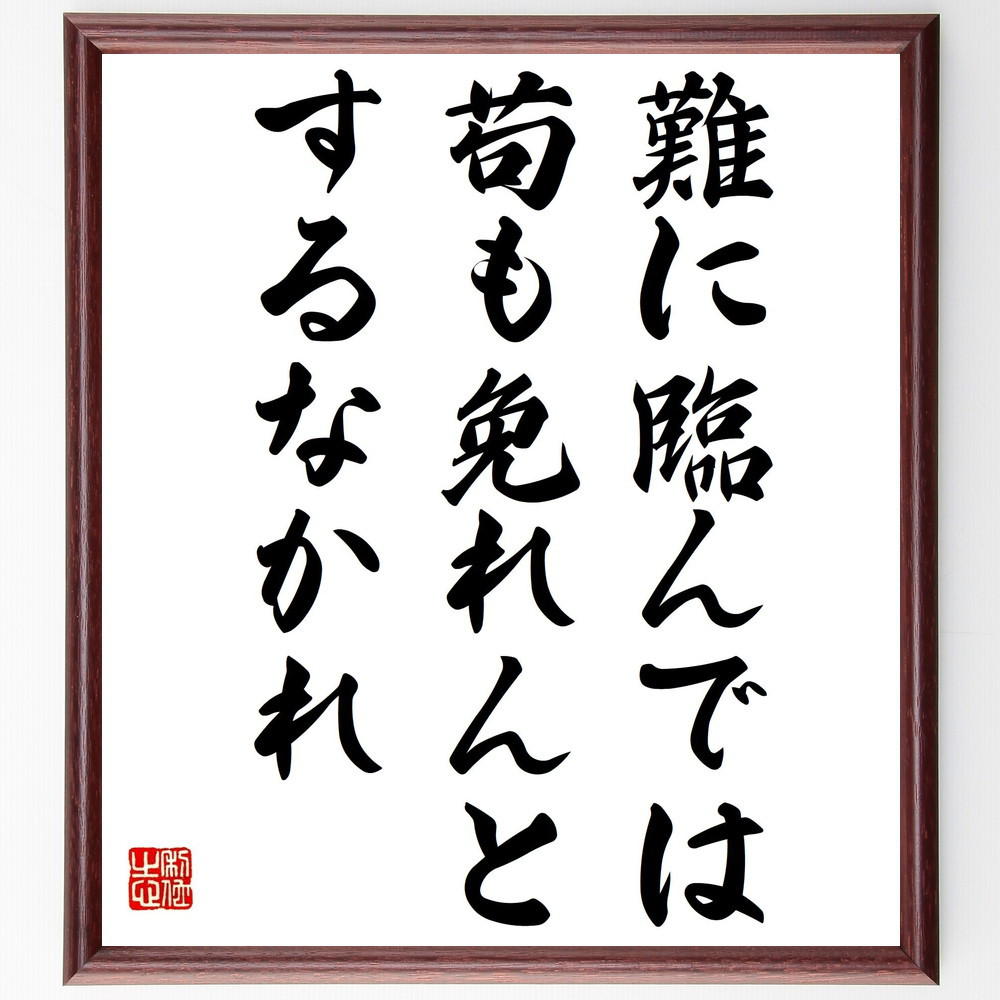 難に臨んでは
苟も免れんと
するなかれ